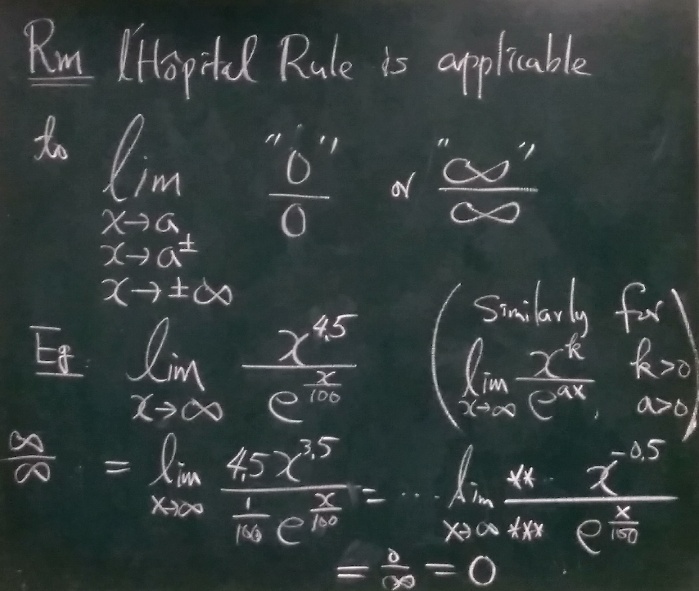 Rm l'Hôpital Rule is applicable
to lim "0"/0 or "∞"/∞
x→a
x→a±
x→±∞
Eg. lim x→∞ x^4.5 / e^(x/100) (Similarly for lim x→∞ x^k / e^(ax), k>0 a>0)
∞/∞ = lim x→∞ 4.5x^3.5 / (1/100 e^(x/100)) = ... lim x→∞ **/*** x^-0.5 / e^(x/100)
= 0/∞ = 0